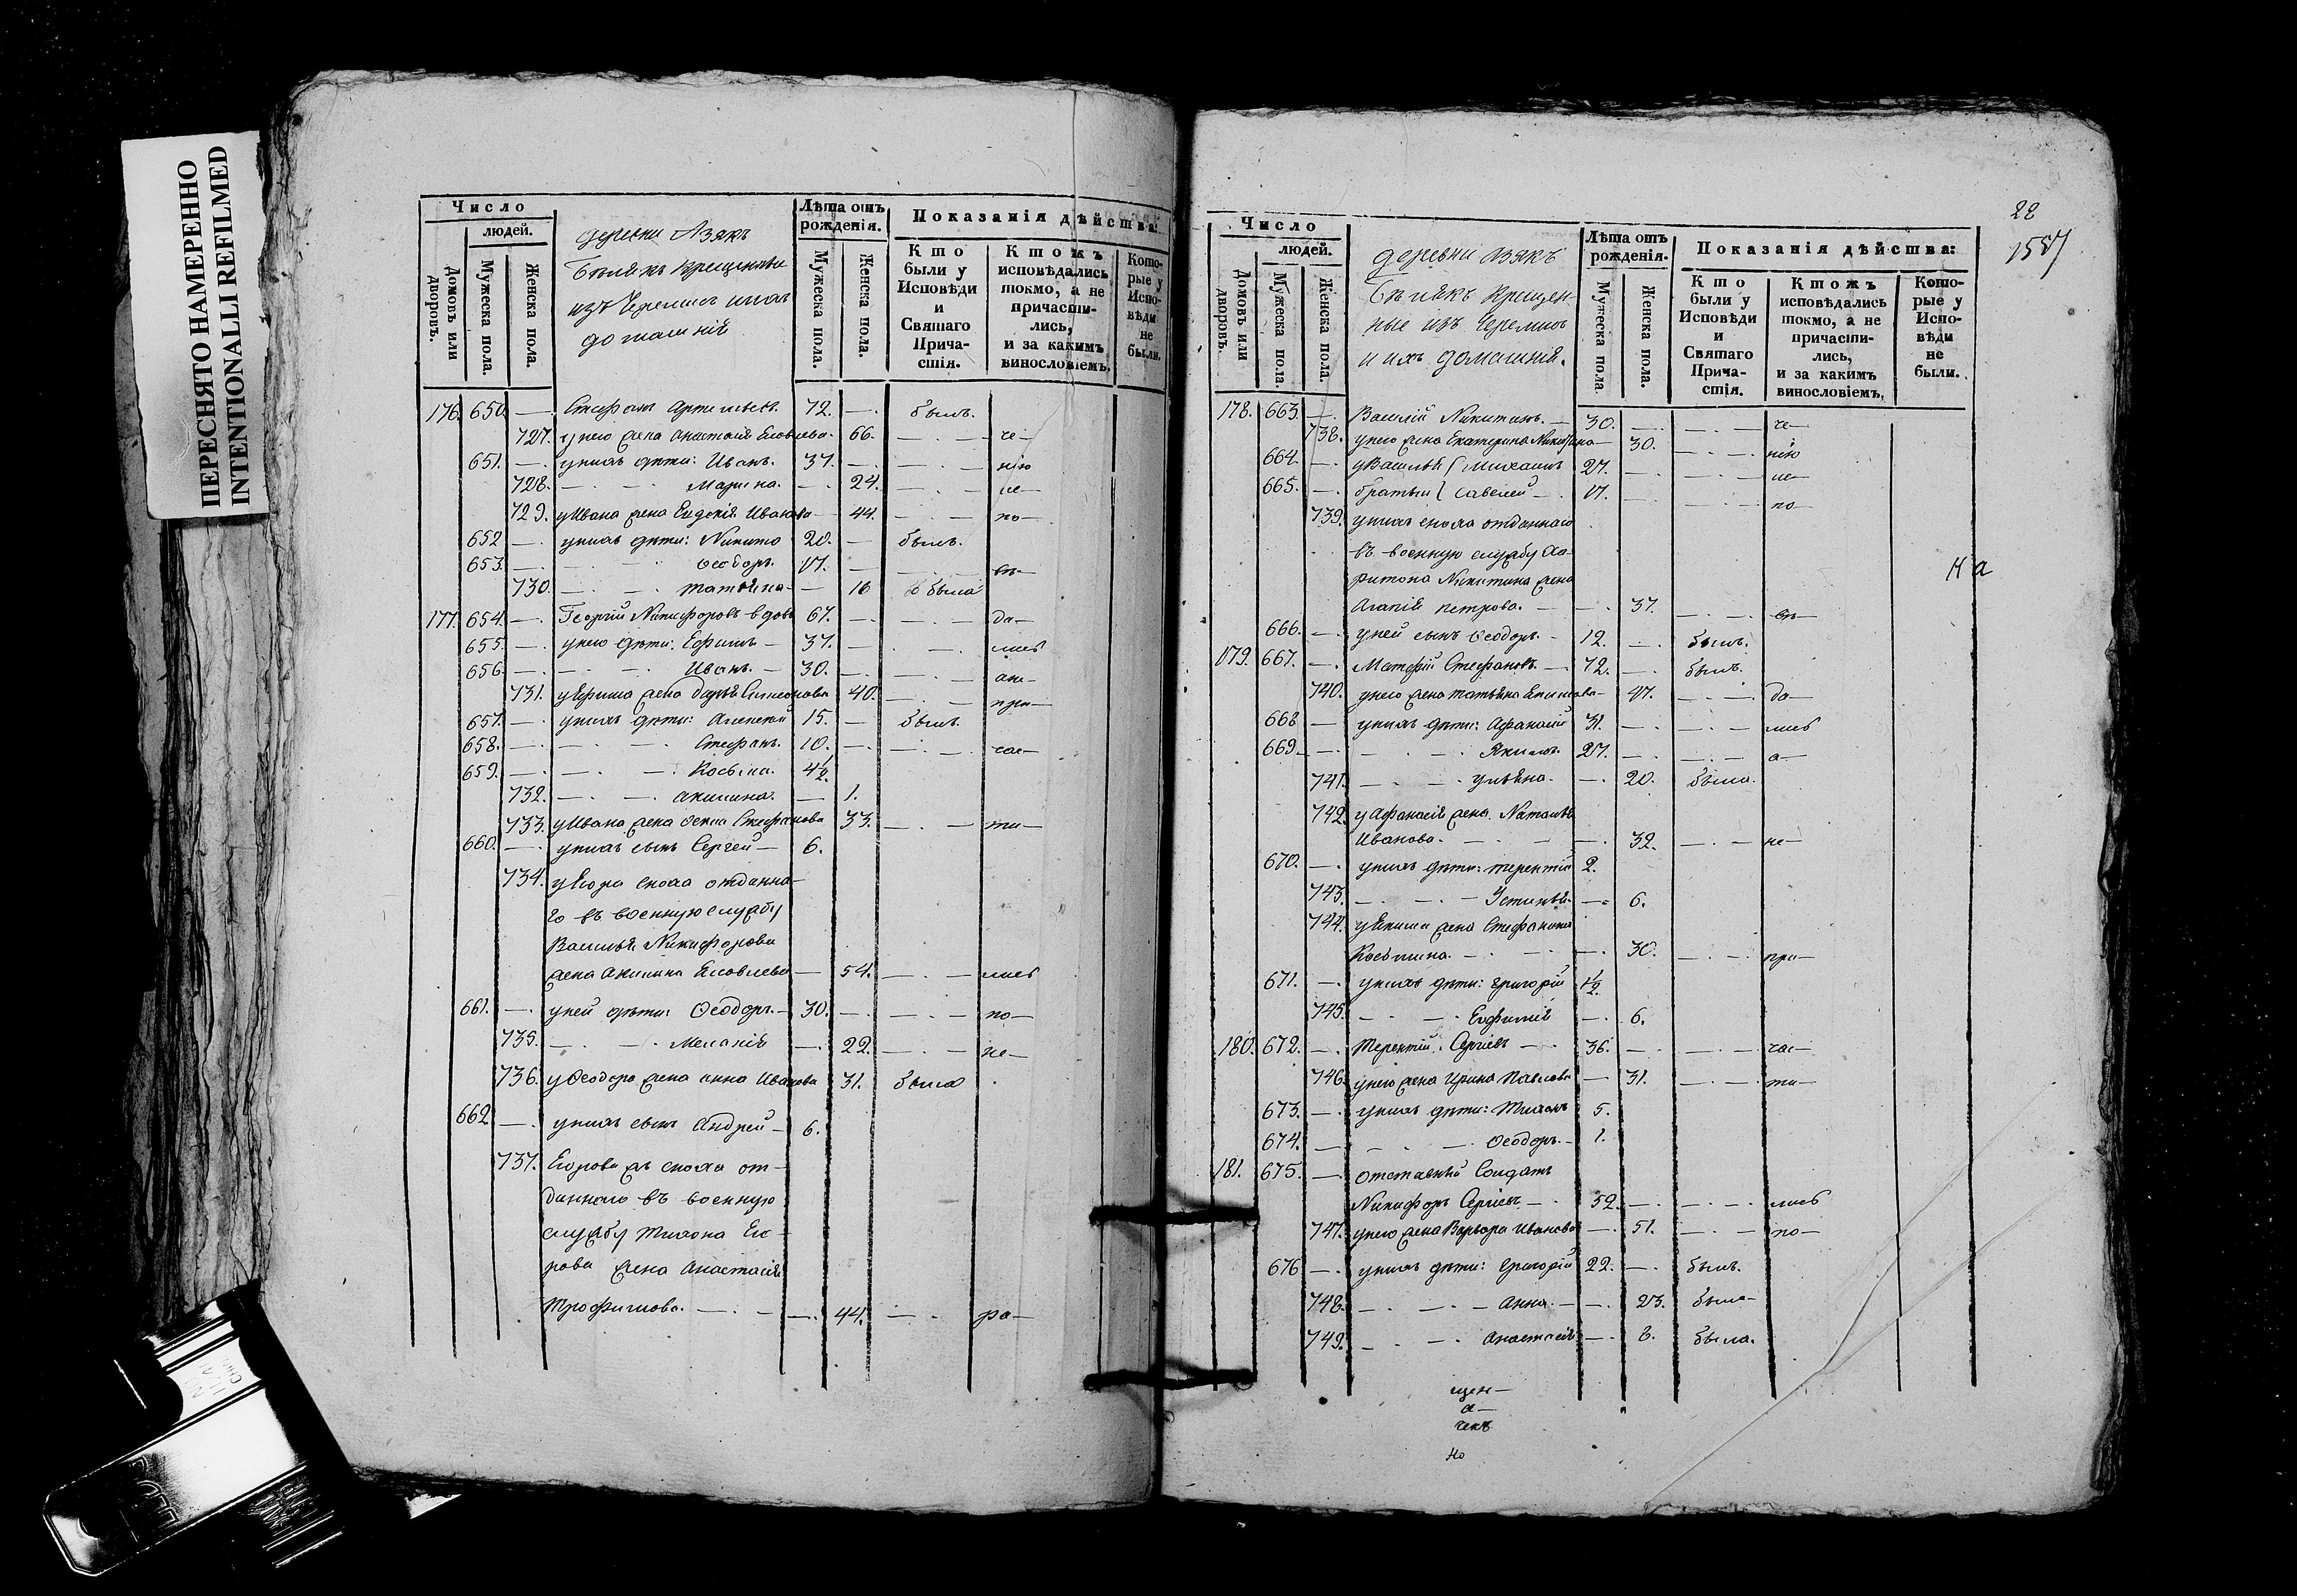 ПЕРЕСНЯТО НАМЕРЕННО
INTENTIONALLI REFILMED
Число
людей.
Домовъ или дворовъ.
Мужеска пола.
Женска пола.
деревни Азякъ
крещеные
изъ Черемисъ ихъ
домашнiе
Лѣта отъ рожденiя.
Мужеска пола.
Женска пола.
Показанiя дѣйства:
Кто были у Исповѣди и Святаго Причастiя.
Ктожъ исповѣдались токмо, а не причастились, и за какимъ винословiемъ.
Которые у Исповѣди не были.
176. 650. —. Стефанъ 72. —. былъ.
727. у него жена Анастасiя 66. — . — че—
651. —. у нихъ дѣти: Иванъ. 37. —. — . — нiю
728. — . — . Марина. — . 24. — . — не—
729. у Ивана жена Евдокiя Иванова — 44. — . — по—
652 —. у нихъ дѣти: Никита 20. — былъ.
653. —. — . — Ѳеодоръ. 17. — — . — въ—
730. — . — . Татьяна — 16 была
177. 654. —. Георгiй Никифоровъ вдовъ 67. — — . — да—
655. —. у него дѣти: Ефимъ — 37. — — . — лись
656. —. — . — Иванъ. — 30. —. — . —
731. у Ефима жена Дарья Симеонова 40. — . — при—
657. —. у нихъ дѣти: Алексей 15. — былъ.
658. —. — . — . Стефанъ. 10. —. — . — час—
659. —. — . — . Косьма. 4½.
732. — . — . Акилина. — 1.
733. у Ивана жена Стефанова 33. — . — ти—
660. —. у нихъ сынъ Сергей — 6.
734. у Егора сноха отданна—
го въ военную службу
Василья Никифорова
жена Акилина Яковлева — 54. — . — лись
661. —. у ней дѣти: Ѳеодоръ. — 30. — — . — по—
735. — . — . Меланiя — . 22. — . — не—
736. у Ѳеодора жена Анна Иванова 31. была
662 —. у нихъ сынъ Андрей — 6.
737. Егорова жъ сноха от—
даннаго въ военную
службу Тихона Его—
рова жена Анастасiя
Трофимова. — . — —. 44. — . ра—
22
1587
Число
людей.
Домовъ или дворовъ.
Мужеска пола.
Женска пола.
деревни Азякъ
крещен-
ные изъ Черемисъ
и ихъ домашнiя.
Лѣта отъ рожденiя.
Мужеска пола
Женска пола.
Показанiя дѣйства:
Кто были у Исповѣди и Святаго Причастiя.
Ктожъ исповѣдались токмо, а не причастились, и за какимъ винословiемъ.
Которые у Исповѣди не были.
178. 663. —. Василiй Никитинъ. — 30. —. — . — че—
738. у него жена Екатерина — 30. — . — нiю
664. —. у Василья Михаилъ 27. —. — . — не—
665. —. братьи Савелей — . 17. — — . — по—
739. у нихъ сноха отданнаго
въ военную службу Ха-
ритона Никитина жена
Агапiя Петрова. — — . 37. — . — въ—
На
666. —. у ней сынъ Ѳеодоръ. — 12. —. былъ.
179. 667. —. Матфiй Стефановъ. — 72. —. былъ.
740. у него жена Татьяна 47. — . — да—
668 — у нихъ дѣти: Афанасiй 31. —. — . — лись
669 —. — . — Якимъ. 27. —. — . — а—
741. — . — . Ульяна. —. 20. была.
742. у Афанасiя жена Наталья
Иванова. — . — —. 32. — . — не—
670. —. у нихъ дѣти: Терентiй 2.
743. — . — . — Устинья —. 6.
744. у Якима жена Стефанида
Косьмина. — . — —. 30. — . — при—
671. —. у нихъ дѣти: Григорiй ½.
745. — . — . Евфимiя —. 6.
180. 672. —. Терентiй Сергiевъ — . 36. —. — . — час—
746. у него жена Ирина Павлова — 31. — . — ти—
673. —. у нихъ дѣти: Тихонъ 5.
674. — — . — . Ѳеодоръ. — 1.
181. 675. —. Отставный Солдатъ
Никифоръ Сергiевъ — . 52. —. — . — лись
747. у него жена Варвара Иванова —. 51. — . — по—
676 —. у нихъ дѣти: Григорiй 22. —. былъ.
748. — . — . — Анна. — —. 23. была
749. — . — . Анастасiя —. 8. была.
щен—
а—
чекъ
но